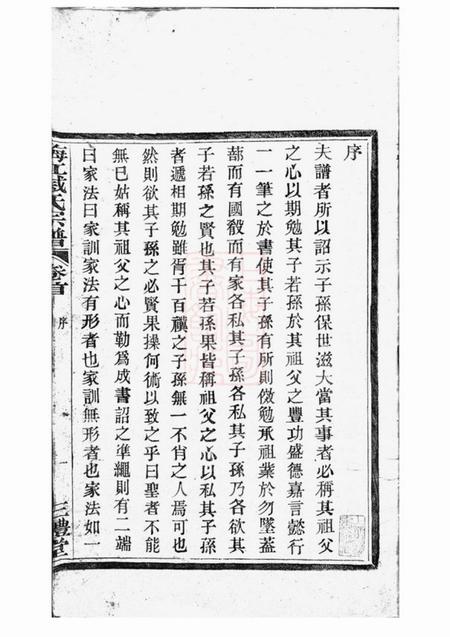 序
夫譜者所以詔示子孫保世滋大當其事者必稱其祖父
之心以期勉其子若孫於其祖父之豐功盛德嘉言懿行
一一筆之於書使其子孫有所則傚勉承祖業於勿墜蓋
蔀而有國殺而有家各私其子孫各私其子孫乃各欲其
子若孫之賢也其子若孫果皆稱祖父之心以私其子孫
者遞相期勉雖胥千百禩之子孫無一不肖之人焉可也
然則欲其子孫之必賢果操何術以致之乎曰聖者不能
無已姑稱其祖父之心而勒為成書詔之準繩則有二端
曰家法曰家訓家法有形者也家訓無形者也家法如一
海江臧氏宗譜 卷首 序 一 三禮堂